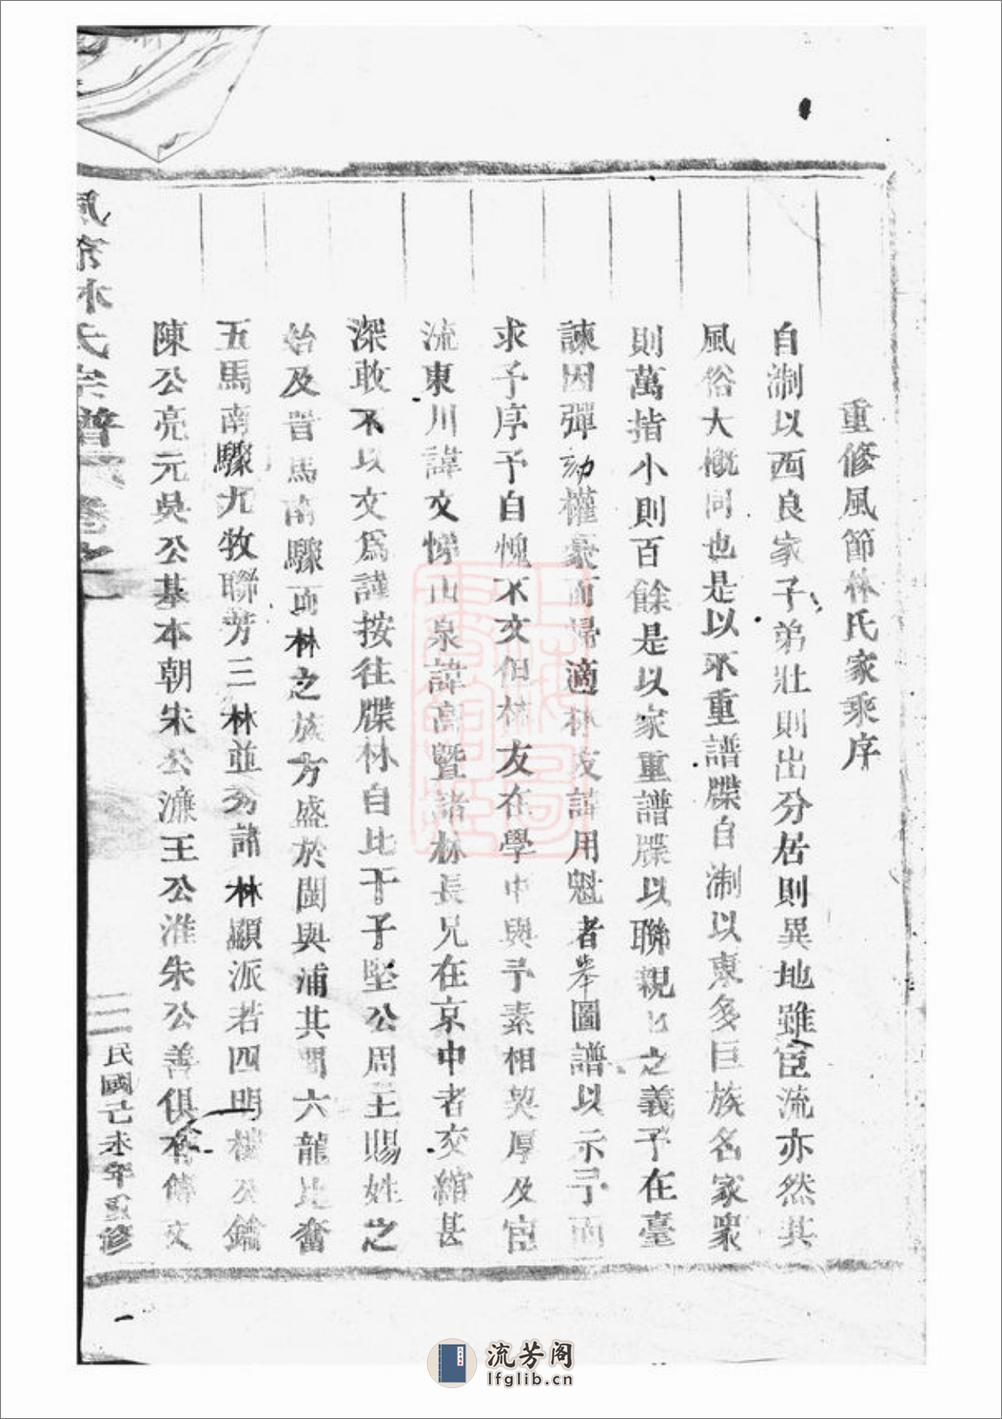 重修風節林氏家乘序
自淛以西良家子弟壯則出分居則異地雖宦流亦然其
風俗大概同也是以不重譜牒自淛以東多巨族名家衆
則萬指小則百餘是以家重譜牒以聯親之義予在臺
諫因彈劾權豪而歸適林友諱用魁者奉圖譜以示予而
求予序予自愧不文但林友在學中與予素相契厚及宦
流東川諱文悌山泉諱高暨諸林長兄在京中者交綰甚
深敢不以文爲謹按往牒林自比干子堅公周王賜姓之
始及晋馬南驟而林之族方盛於閩與浦其間六龍比奮
五馬南驟九牧聯芳三林並分諸林顯派若四明樓公鑰
陳公亮元吳公基本朝朱公濂王公淮朱公善俱有傳文
風節林氏宗譜 卷之一
二 民國己未年重修
流芳阁
lfglib.cn